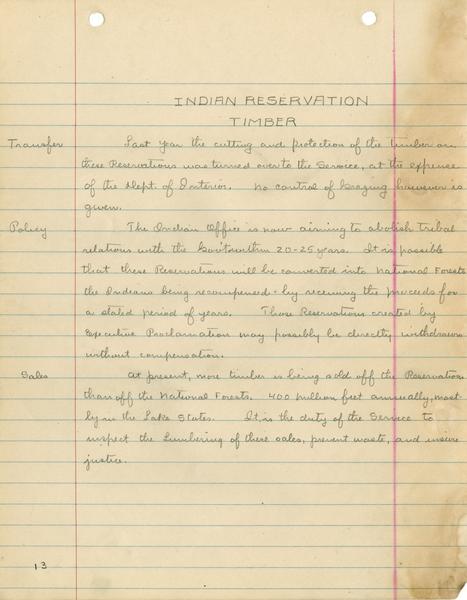 INDIAN RESERVATION
TIMBER
Transfer Last year the cutting and protection of the timber on
these Reservations was turned over to the Service, at the expense
of the Dept. of Interior. No control of Grazing however is
given.
Policy The Indian Office is now aiming to abolish tribal
relations with the Gov't within 20-25 years. It is possible
that these Reservations will be converted into National Forests
the Indians being recompensed by receiving the proceeds for
a stated period of years. Those Reservations created by
Executive Proclamation may possibly be directly withdrawn
without compensation.
Sales At present, more timber is being sold off the Reservation
than off the National Forests. 400 million feet annually, most-
ly in the Lake States. It is the duty of the Service to
inspect the Lumbering of these sales, prevent waste, and insure
justice.
13